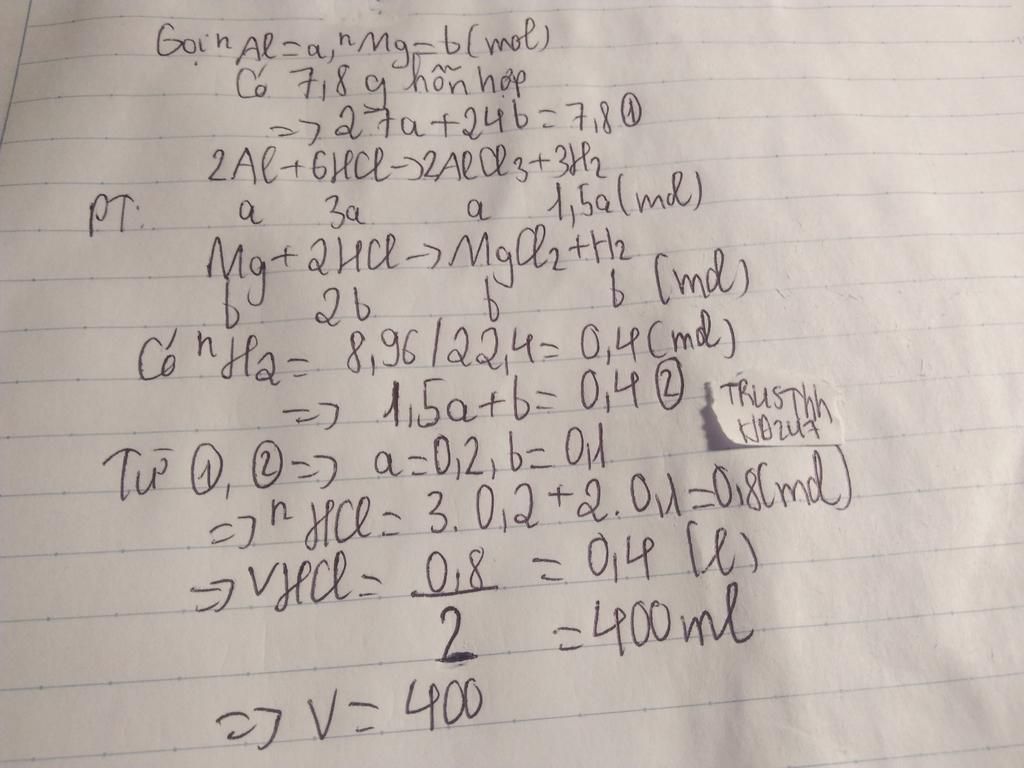 Gọi nAl=a, nMg=b(mol)
Có 7,8 g hỗn hợp
=> 27a+24b=7,8 ①
2Al+6HCl→2AlCl3+3H2
PT: a 3a a 1,5a(mol)
Mg+2HCl→MgCl2+H2
b 2b b b (mol)
Có nH2= 8,96/22,4= 0,4(mol)
=> 1,5a+b= 0,4 ②
TRUSThh
KID247
Từ ①, ② => a=0,2, b=0,1
=> nHCl= 3. 0,2+2. 0,1=0,8(mol)
=> VHCl= 0,8/2 = 0,4 (l)
=400ml
=> V= 400